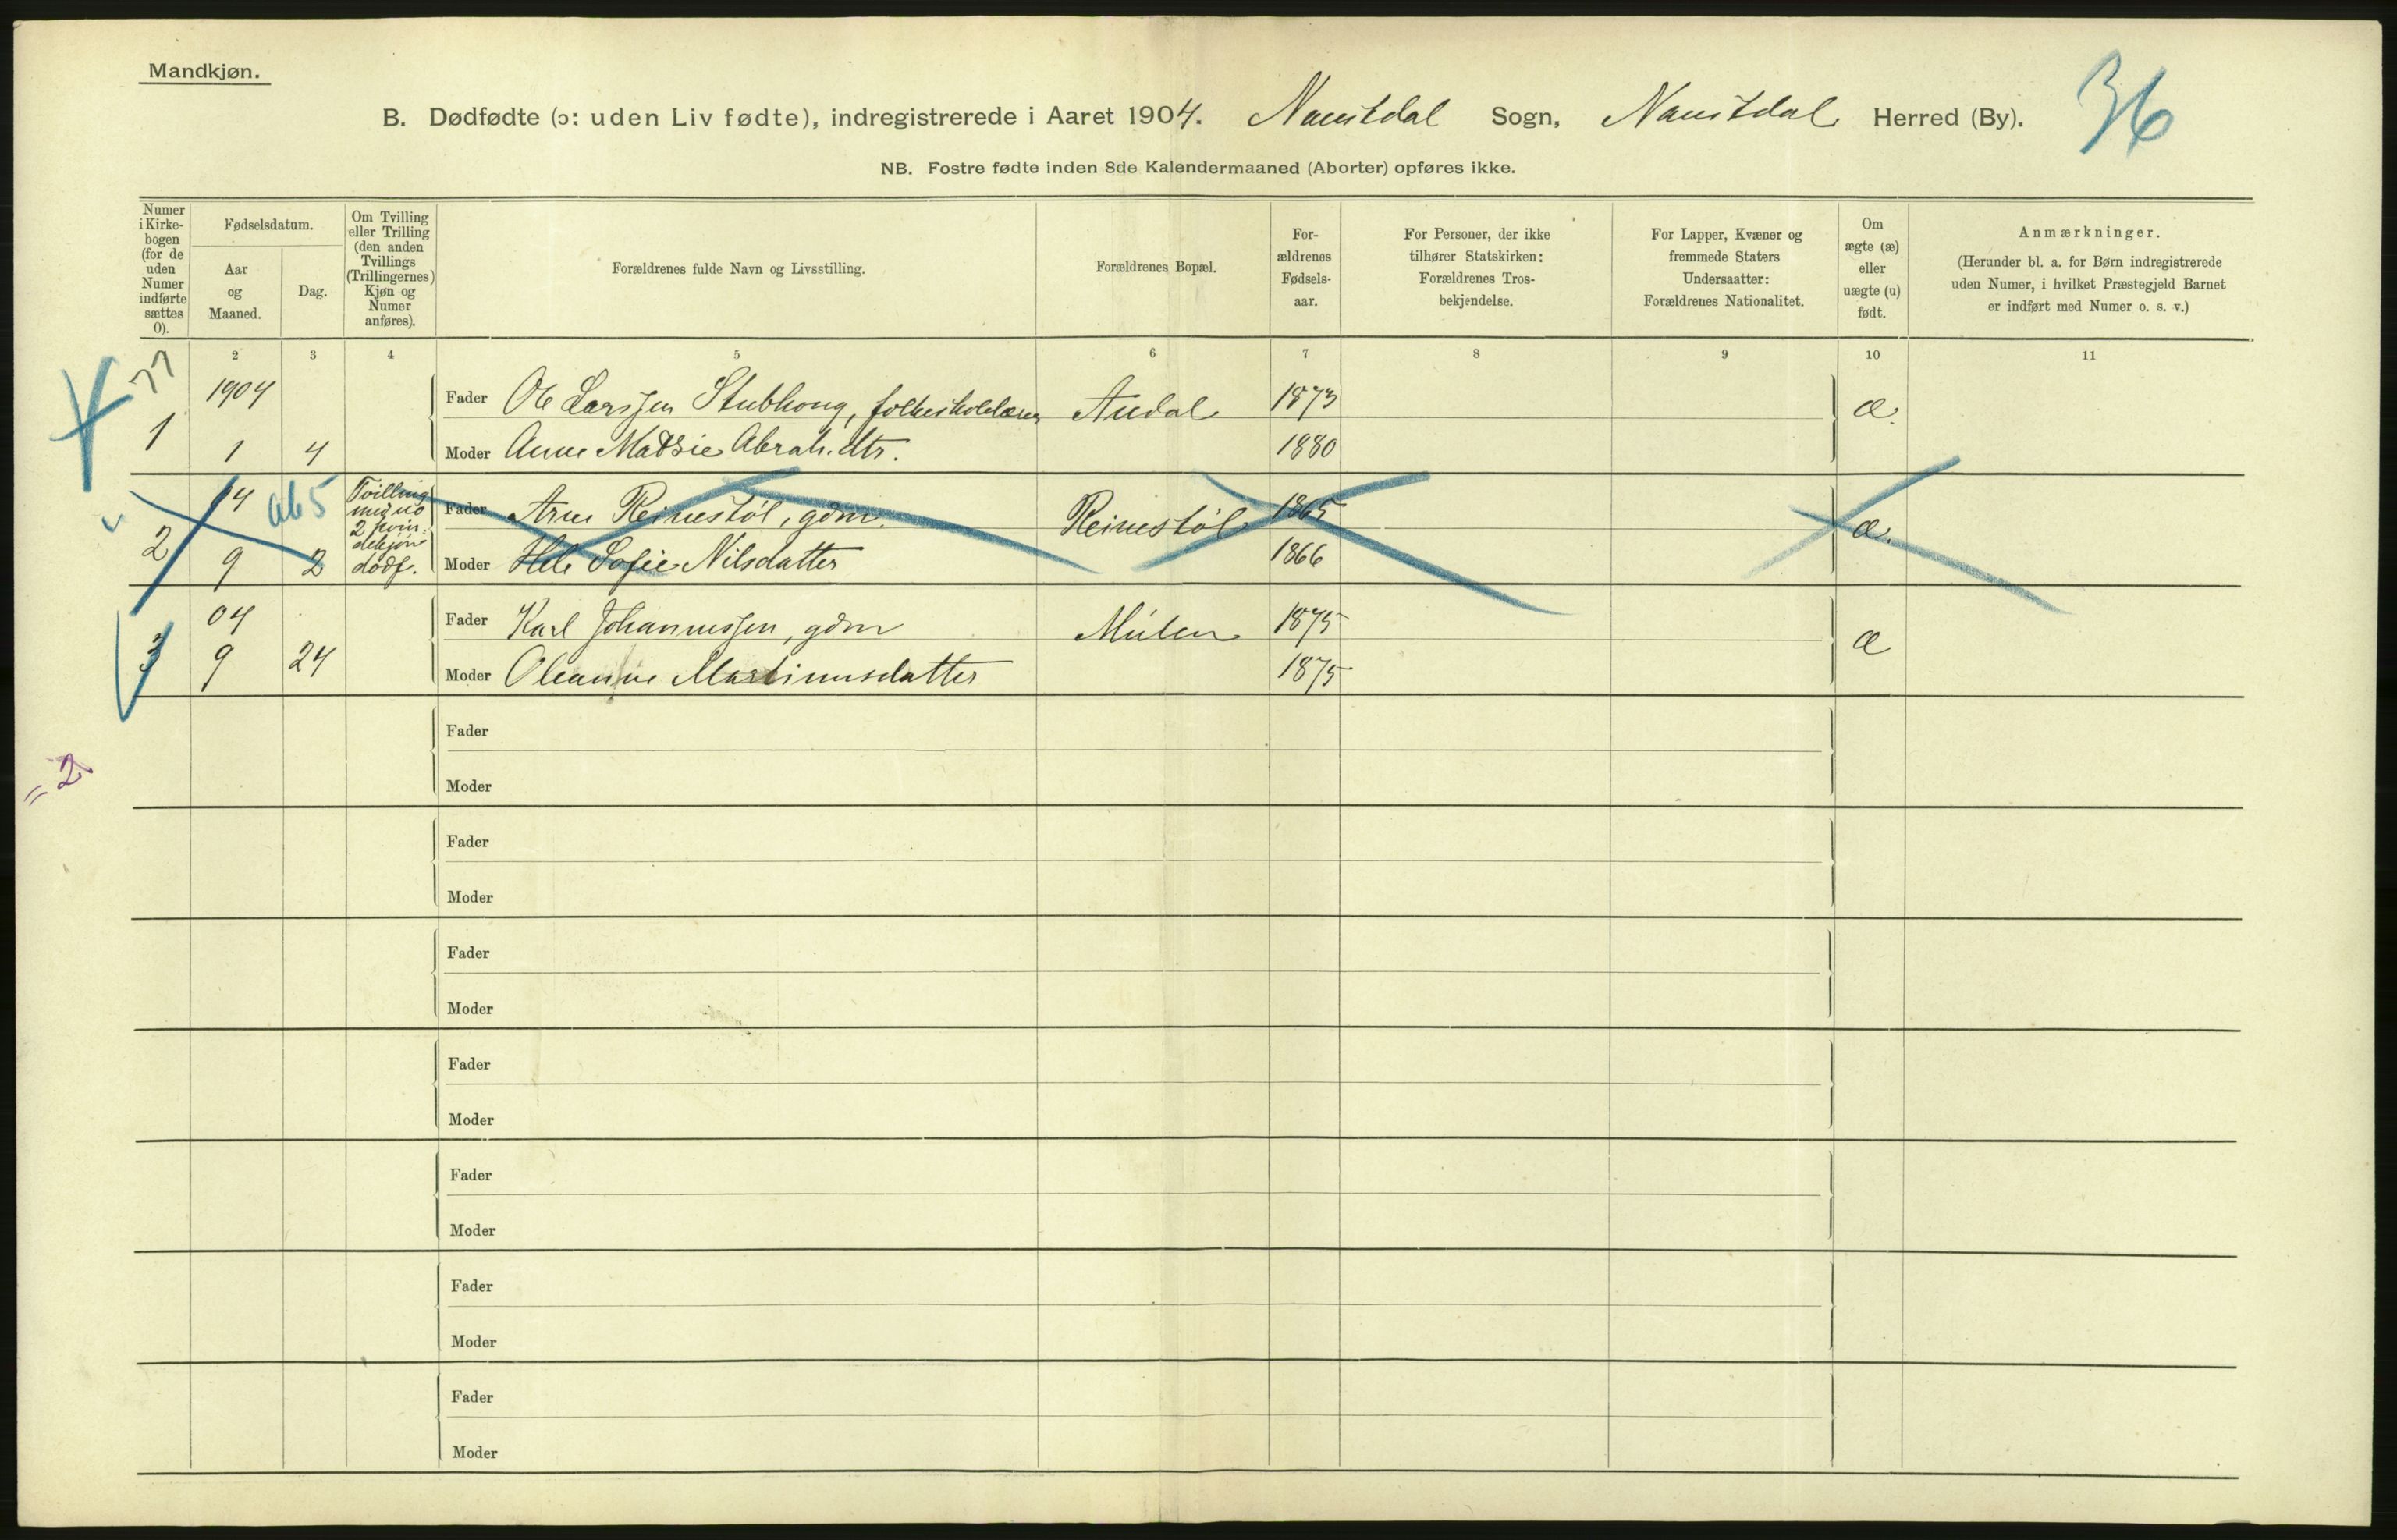 Mandkjøn.
B. Dødfødte (ɔ: uden Liv fødte), indregistrerede i Aaret 1904. Naustdal Sogn, Naustdal Herred (By).
36
NB. Fostre fødte inden 8de Kalendermaaned (Aborter) opføres ikke.
Numer
i Kirke-
bogen
(for de
uden
Numer
indførte
sættes
0).
Fødselsdatum.
Aar
og
Maaned.
Dag.
Om Tvilling
eller Trilling
(den anden
Tvillings
(Trillingernes)
Kjøn og
Numer
anføres).
Forældrenes fulde Navn og Livsstilling.
Forældrenes Bopæl.
For-
ældrenes
Fødsels-
aar.
For Personer, der ikke
tilhører Statskirken:
Forældrenes Tros-
bekjendelse.
For Lapper, Kvæner og
fremmede Staters
Undersaatter:
Forældrenes Nationalitet.
Om
ægte (æ)
eller
uægte (u)
født.
Anmærkninger.
(Herunder bl. a. for Børn indregistrerede
uden Numer, i hvilket Præstegjeld Barnet
er indført med Numer o. s. v.)
2 3 4 5 6 7 8 9 10 11
77
1904 Fader Ole Larssen Stubhoug, folkeskolelærer Audal 1873 æ.
1 1 4 Moder Anne Abrah.dtr. 1880
04 Tvilling
med no
2 kvin-
dekjøn
dødf.
Fader Arne Reinestøl, gdm. Reinestøl 1865 æ.
2 9 2 Moder Sofie Nilsdatter 1866
04 Fader Karl Johannessen, gdm Mulen 1875 æ
3 9 24 Moder Oleanne Martinusdatter 1875
Fader
Moder
= 2
Fader
Moder
Fader
Moder
Fader
Moder
Fader
Moder
Fader
Moder
Fader
Moder